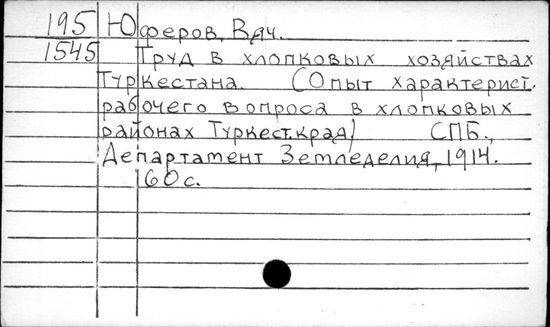 195 Юферов, Вяч.
1545 Труд в хлопковых хозяйствах
Туркестана. (Опыт характерист.
рабочего вопроса в хлопковых
районах Туркест.края) СПБ.,
Департамент Земледелия, 1914.
60с.